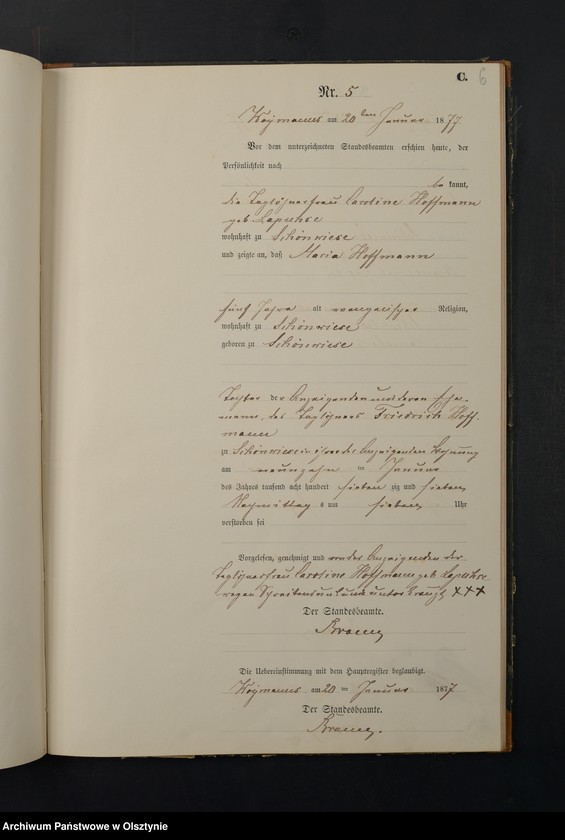 C.
6
Nr. 5
am 20ten Januar 1877
Vor dem unterzeichneten Standesbeamten erschien heute, der
Persönlichkeit nach
be kannt,
die Taglöhnerfrau Caroline Hoffmann
geb.
wohnhaft zu Schönwiese
und zeigte an, daß Maria Hoffmann
fünf Jahre alt evangelischer Religion,
wohnhaft zu Schönwiese
geboren zu Schönwiese
Tochter der Anzeigenden und deren Ehe-
mannes, des Taglöhners Friedrich Hoff-
mann
zu Schönwiese in ihrer der Anzeigenden Wohnung
am neunzehn ten Januar
des Jahres tausend acht hundert sieben zig und sieben
Nachmittags um sieben Uhr
verstorben sei
Vorgelesen, genehmigt und von der Anzeigenden der
Taglöhnerfrau Caroline Hoffmann geb.
wegen Schreibensunkunde unterkreuzt XXX
Der Standesbeamte.
Die Uebereinstimmung mit dem Hauptregister beglaubigt.
am 20 ten Januar 1877
Der Standesbeamte.
Archiwum Państwowe w Olsztynie